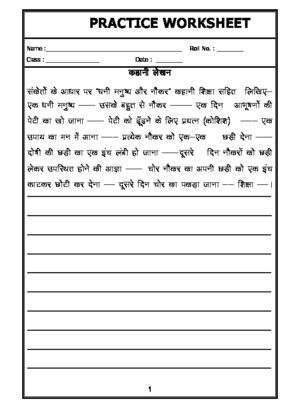 PRACTICE WORKSHEET
Name : Roll No. :
Class : Date :
कहानी लेखन
संकेतों के आधार पर "धनी मनुष्य और नौकर" कहानी शिक्षा सहित लिखिए–
एक धनी मनुष्य —— उसके बहुत से नौकर —— एक दिन आभूषणों की
पेटी का खो जाना —— पेटी को ढूँढ़ने के लिए प्रयत्न (कोशिश) —— एक
उपाय का मन में आना —— प्रत्येक नौकर को एक–एक छड़ी देना ——
दोषी की छड़ी का एक इंच लंबी हो जाना ——दूसरे दिन नौकरों को छड़ी
लेकर उपस्थित होने की आज्ञा —— चोर नौकर का अपनी छड़ी को एक इंच
काटकर छोटी कर देना —— दूसरे दिन चोर का पकड़ा जाना —— शिक्षा —।
1